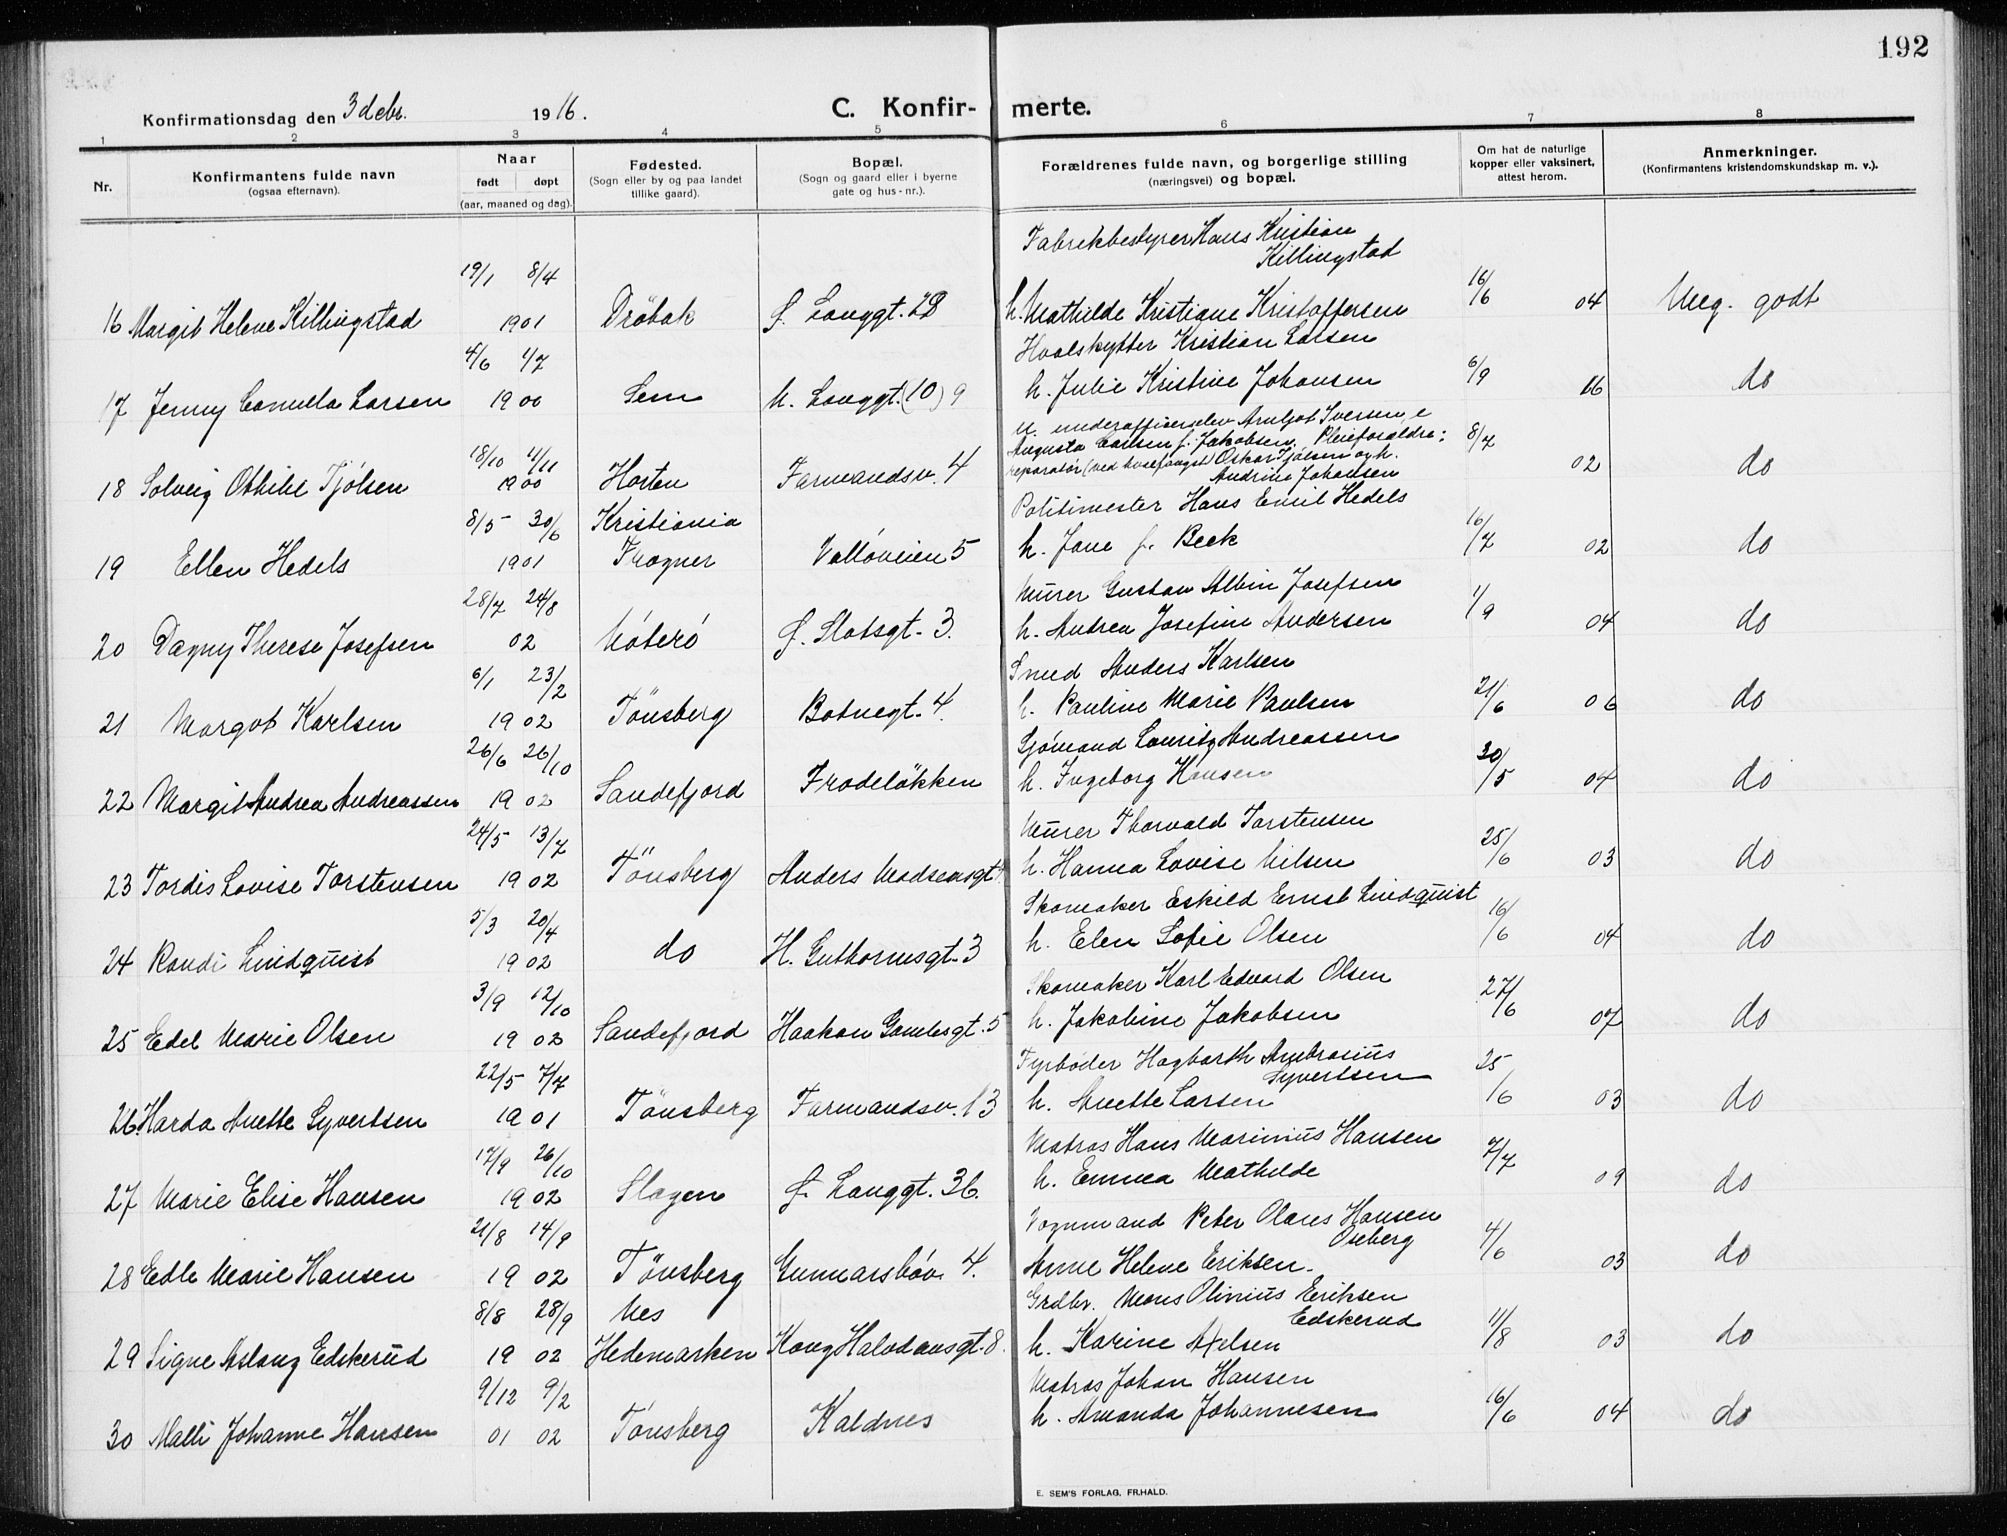 192
Konfirmationsdag den 3 debr. 1916.
C. Konfirmerte.
1 2 3 4 5 6 7 8
Nr.
Konfirmantens fulde navn
(ogsaa efternavn).
Naar
født døpt
(aar, maaned og dag).
Fødested.
(Sogn eller by og paa landet
tillike gaard).
Bopæl.
(Sogn og gaard eller i byerne
gate og hus-nr.).
Forældrenes fulde navn, og borgerlige stilling
(næringsvei) og bopæl.
Om hat de naturlige
kopper eller vaksinert,
attest herom.
Anmerkninger.
(Konfirmantens kristendomskundskap m. v.).
Fabrikbestyrer Hans Kristian
Killingstad
19/1 8/4
16 Margit Helene Killingstad 1901 Dröbak S. Langgt. 28 h. Mathilde Kristiane Kristoffersen 16/6 04 Meg. godt
4/6 1/7 Hvalskytter Kristian Larsen
17 Jenny Camilla Larsen 1900 Sem N. Langgt. (10) 9 h. Julie Kristine Johansen 6/9 16 do
u. underofficerselev Arnljot Iversen, e
Augusta Carlsen f. Jakobsen. Pleieforældre:
18/10 4/11 reparatör (ved hvalfangst) Oskar Tjölsen og h. 8/7
18 Solveig Othilie Tjölsen 1900 Horten Farmandsv. 4 Andrine Johansen 02 do
8/5 30/6 Kristiania Politimester Hans Emil Hedels
19 Ellen Hedels 1901 Frogner Vallöveien 5 h. Jane f. Beck 16/7 02 do
28/7 24/8 Murer Gustav Albin Josefsen
20 Dagny Therese Josefsen 02 Nöterö S. Slotsgt. 3. h. Andrea Josefine Andersen 1/9 04 do
6/1 23/2 Smed Anders Karlsen
21 Margot Karlsen 1902 Tönsberg Botnegt. 4. h. Pauline Marie Paulsen 21/6 06 do
26/6 26/10 Sjömand Lauritz Andreassen
22 Margit Andrea Andreassen 1902 Sandefjord Frodelökken h. Ingeborg Hansen 30/5 04 do
24/5 13/7 Murer Thorvald Torstensen
23 Tordis Lovise Torstensen 1902 Tönsberg Anders Madsensgt. h. Hanna Lovise Nilsen 25/6 03 do
5/3 20/4 Skomaker Eskild Ernst Lindquist
24 Randi Lindquist 1902 do H. Guthormsgt. 3 h. Elen Sofie Olsen 16/6 04 do
3/9 12/10 Skomaker Karl Edvard Olsen
25 Edel Marie Olsen 1902 Sandefjord Haakon Gamlesgt. 5 h. Jakobine Jakobsen 27/6 07 do
22/5 7/7 Fyrböder Hagbarth Ambrosius
Syvertsen
26. Harda Anette Syvertsen 1901 Tönsberg Farmandsv. 13 h. Anette Larsen 25/6 03 do
17/9 26/10 Matros Hans Marinius Hansen
27 Marie Elise Hansen 1902 Slagen S. Langgt. 36. h. Emma Mathilde 7/7 09 do
21/8 14/9 Vognmand Peter Olaus Hansen
Oseberg
28 Edle Marie Hansen 1902 Tönsberg Gunnarsböv. 4. Anne Helene Eriksen. 4/6 03 do
8/8 28/9 Nes Grdbr. Mons Olinius Eriksen
Edskerud
29 Signe Aslaug Edskerud 1902 Hedemarken Kong Halvdansgt. 8. h. Karine Axelsen 11/8 03 do
9/12 9/2 Matros Johan Hansen
30 Malli Johanne Hansen 01 02 Tönsberg Kaldnes h. Amanda Johannesen 16/6 04 do
E. SEM'S FORLAG, FR.HALD.